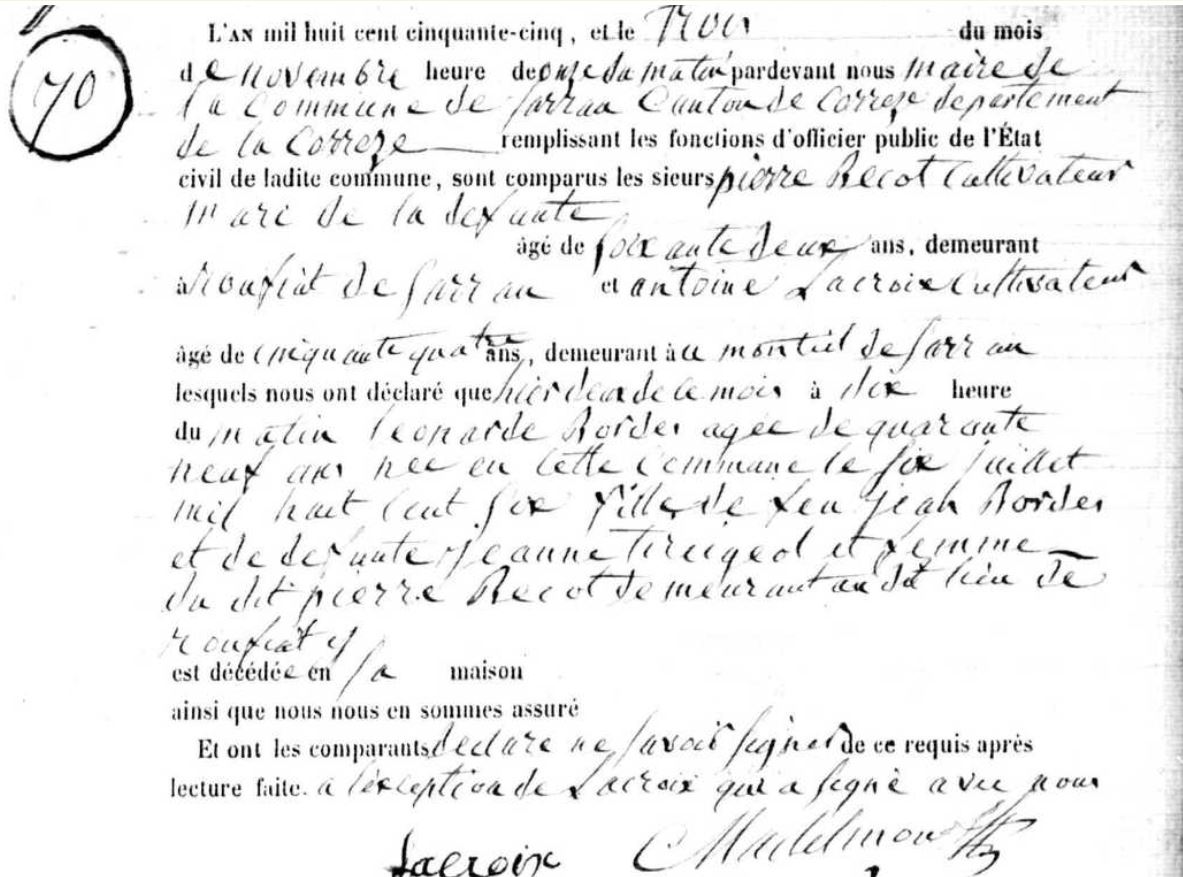 70
L'AN mil huit cent cinquante-cinq, et le trois du mois
de novembre heure de onze du matin pardevant nous maire de
la Commune de Sarran Canton de Correze departement
de la Correze remplissant les fonctions d'officier public de l'État
civil de ladite commune, sont comparus les sieurs pierre Becot Cultivateur
mari de la defunte
âgé de soixante deux ans, demeurant
à roufiat de Sarran et antoine Lacroix Cultivateur
âgé de cinquante quatre ans, demeurant à au montiel de Sarran
lesquels nous ont déclaré que hier deux de ce mois à dix heure
du matin leonarde Bordes agee de quarante
neuf ans nee en cette Commune le six juillet
mil huit cent six fille de feu jean Bordes
et de defunte jeanne et femme
du dit pierre Becot demeurant au dit lieu de
roufiat y
est décédée en sa maison
ainsi que nous nous en sommes assuré
Et ont les comparants declare ne savoir signer de ce requis après
lecture faite. a l'exception de Lacroix qui a signé avec nous
Lacroix